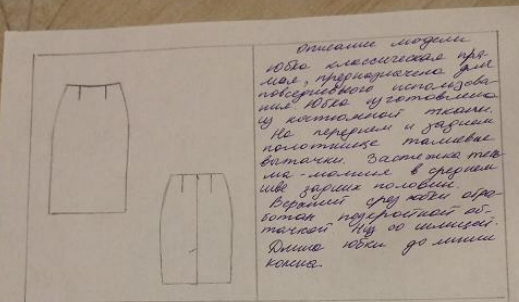 Описание модели
Юбка классическая пря-
мая, предназначена для
повседневного использова-
ния. Юбка изготовлена
из костюмной ткани.
На переднем и заднем
полотнище талиевые
выточки. Застежка тесь-
ма-молния в среднем
шве задних половин.
Верхний срез юбки обра-
ботан подкройной об-
тачкой. Низ со шлицей.
Длина юбки до линии
колена.